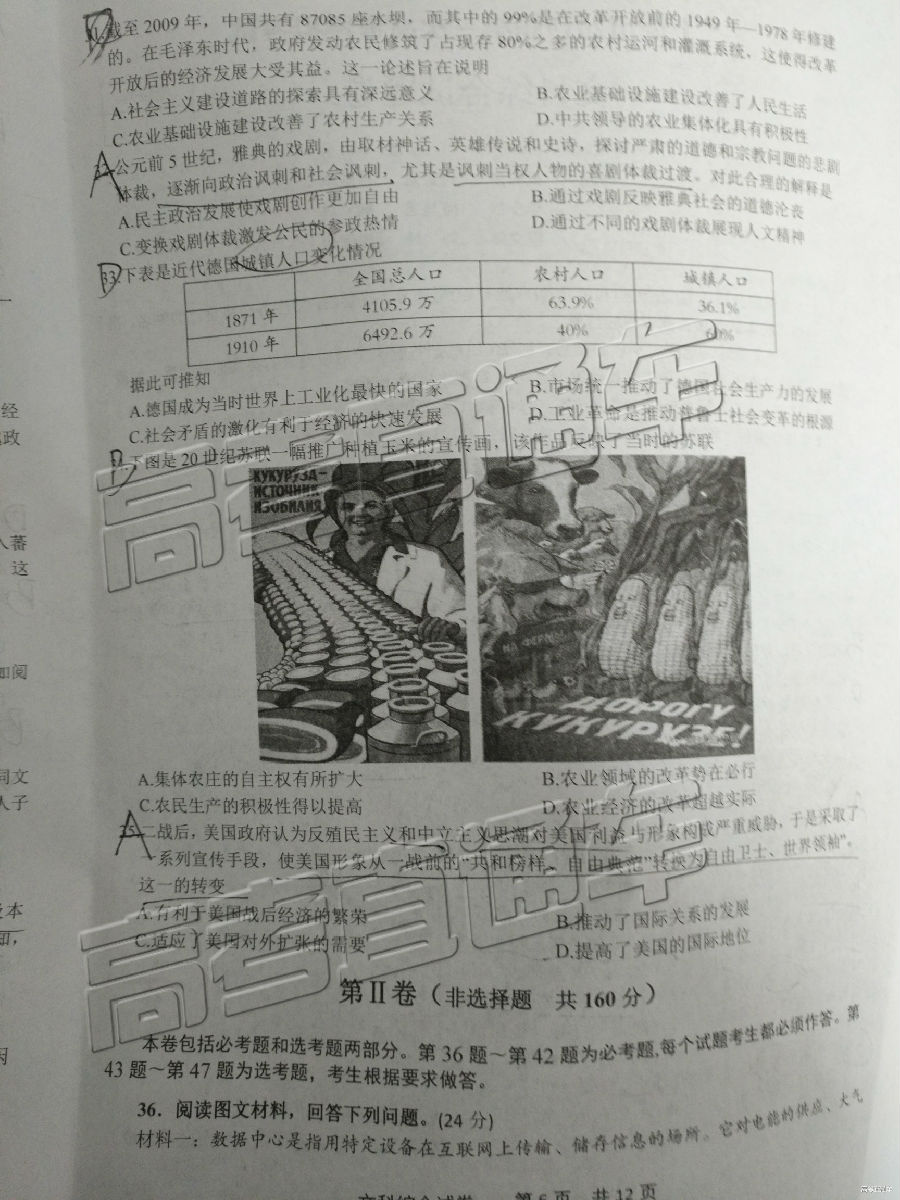 截至 2009 年，中国共有 87085 座水坝，而其中的 99%是在改革开放前的 1949 年—1978 年修建
的。在毛泽东时代，政府发动农民修筑了占现存 80%之多的农村运河和灌溉系统，这使得改革
开放后的经济发展大受其益。这一论述旨在说明
A.社会主义建设道路的探索具有深远意义 B.农业基础设施建设改善了人民生活
C.农业基础设施建设改善了农村生产关系 D.中共领导的农业集体化具有积极性
公元前 5 世纪，雅典的戏剧，由取材神话、英雄传说和史诗，探讨严肃的道德和宗教问题的悲剧
体裁，逐渐向政治讽刺和社会讽刺，尤其是讽刺当权人物的喜剧体裁过渡。对此合理的解释是
A.民主政治发展使戏剧创作更加自由 B.通过戏剧反映雅典社会的道德沦丧
C.变换戏剧体裁激发公民的参政热情 D.通过不同的戏剧体裁展现人文精神
33.下表是近代德国城镇人口变化情况
全国总人口 农村人口 城镇人口
1871 年 4105.9 万 63.9% 36.1%
1910 年 6492.6 万 40% 60%
据此可推知
A.德国成为当时世界上工业化最快的国家 B.市场统一推动了德国社会生产力的发展
C.社会矛盾的激化有利于经济的快速发展 D.工业革命是推动普鲁士社会变革的根源
下图是 20 世纪苏联一幅推广种植玉米的宣传画，该作品反映了当时的苏联
КУКУРУЗА—
ИСТОЧНИК
ИЗОБИЛИЯ
НА ФЕРМЫ
ДОРОГУ
КУКУРУЗЕ!
A.集体农庄的自主权有所扩大 B.农业领域的改革势在必行
C.农民生产的积极性得以提高 D.农业经济的改革超越实际
35.二战后，美国政府认为反殖民主义和中立主义思潮对美国利益与形象构成严重威胁，于是采取了
一系列宣传手段，使美国形象从一战前的“共和榜样、自由典范”转换为“自由卫士、世界领袖”。
这一的转变
A.有利于美国战后经济的繁荣 B.推动了国际关系的发展
C.适应了美国对外扩张的需要 D.提高了美国的国际地位
第Ⅱ卷（非选择题 共 160 分）
本卷包括必考题和选考题两部分。第 36 题～第 42 题为必考题,每个试题考生都必须作答。第
43 题～第 47 题为选考题，考生根据要求做答。
36．阅读图文材料，回答下列问题。(24 分)
材料一：数据中心是指用特定设备在互联网上传输、储存信息的场所。它对电能的供应、大气
文科综合试卷 第 6 页 共 12 页
高考直通车
高考直通车